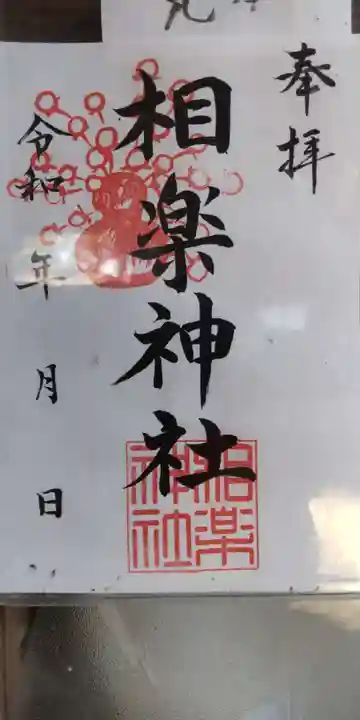 奉拝
相楽神社
令和 年 月 日
相楽
神社